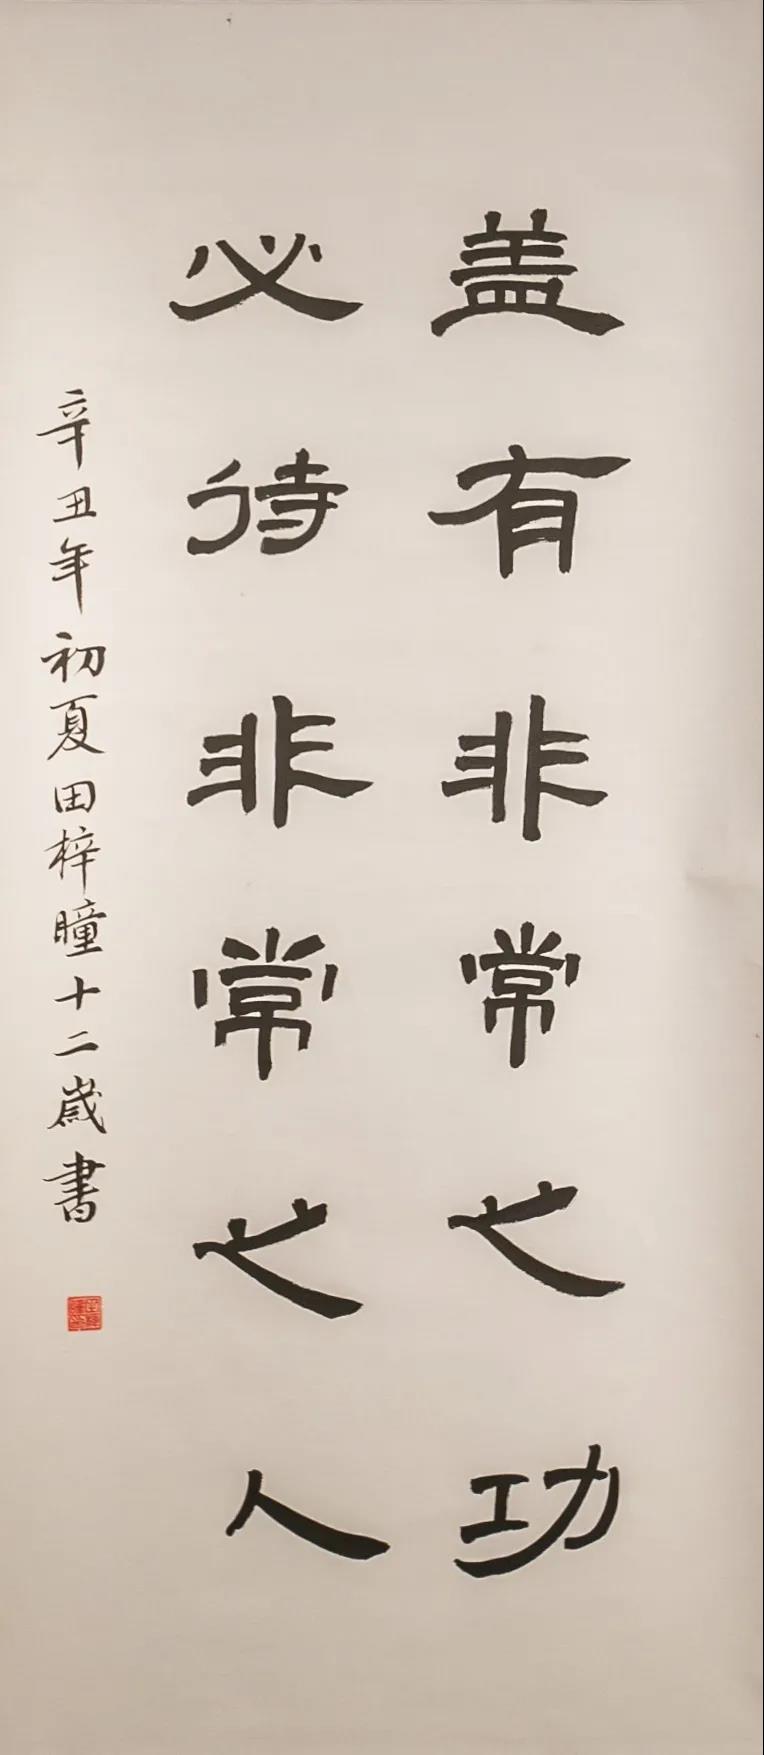 盖有非常之功
必待非常之人
辛丑年初夏田梓瞳十二歲書